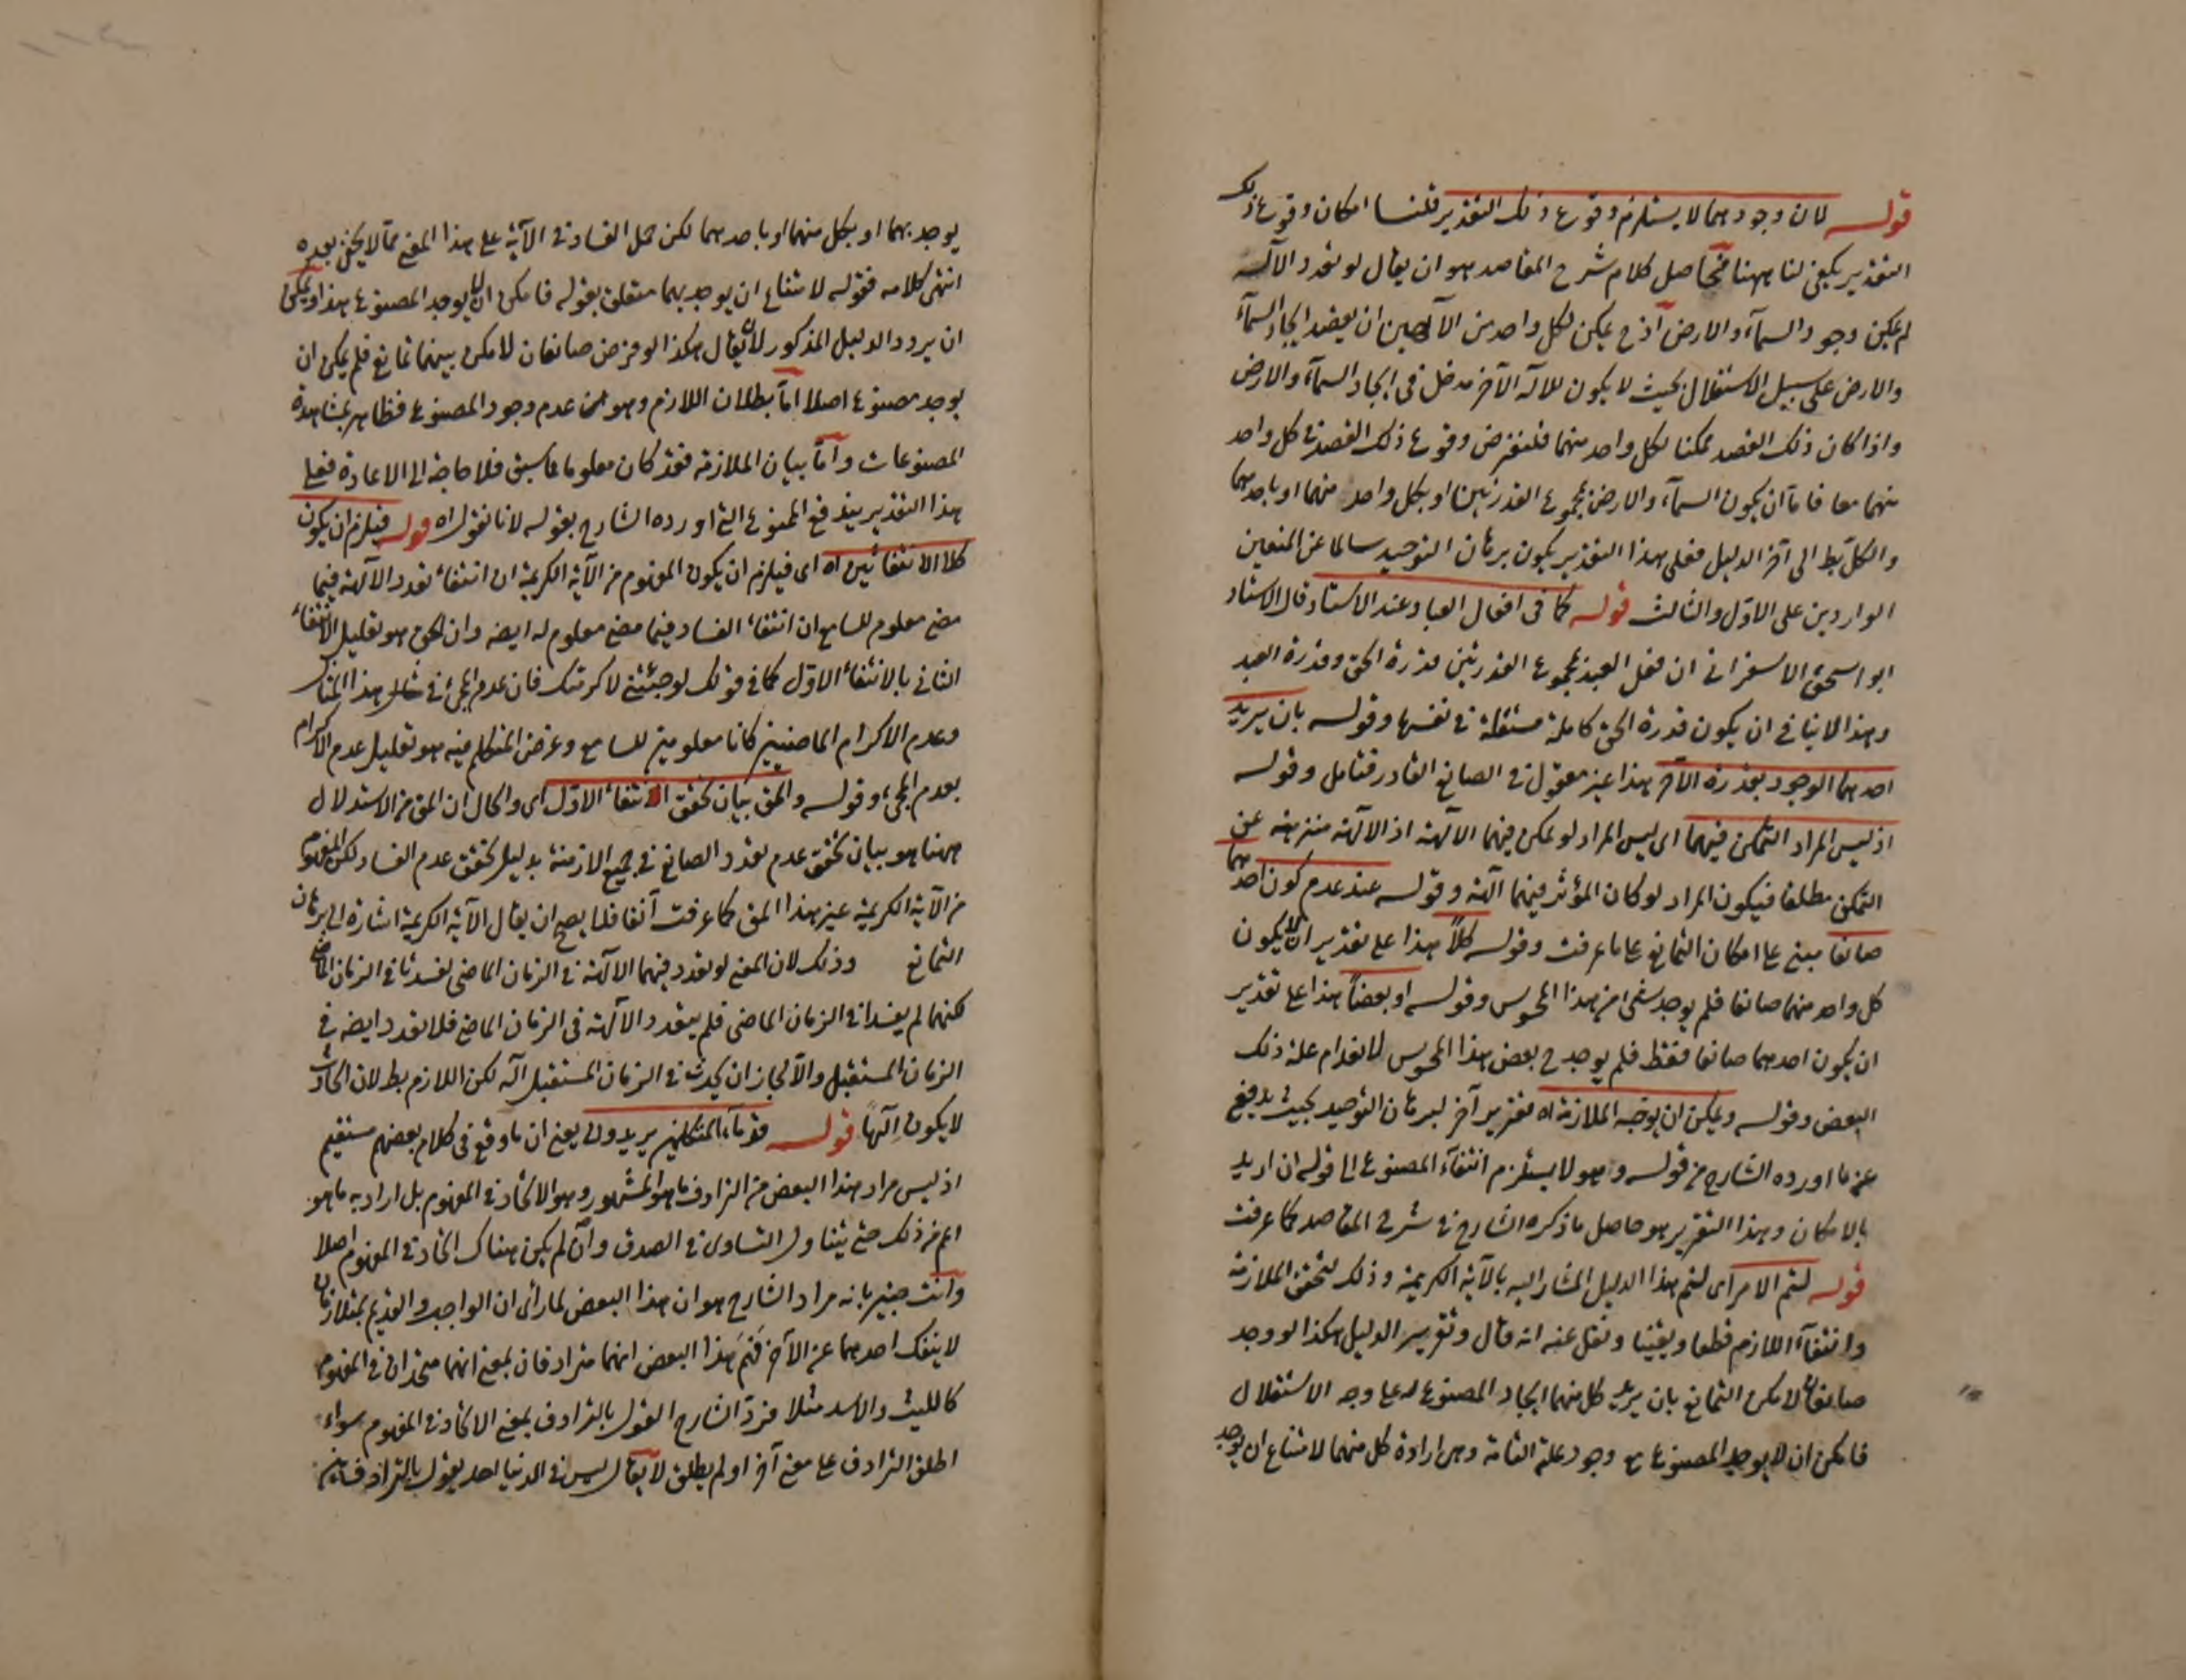 قوله لان وجودهما لا يستلزم وقوع ذلك التقدير قلنا امكان وقوع ذلك
التقدير يكفى لنا ههنا فحاصل كلام شرح المقاصد هو ان يقال لو تعدد الآله
لم يمكن وجود السمآء والارض اذ ح يمكن لكل واحد من الآلهين ان يقصد ايجاد السمآء
والارض على سبيل الاستقلال بحيث لا يكون للاله الآخر مدخل فى ايجاد السمآء والارض
واذا كان ذلك القصد ممكنا لكل واحد منهما فلنفرض وقوع ذلك القصد فى كل واحد
منهما معا فاما ان يكون السمآء والارض بمجموع القدرتين او بكل واحد منهما او باحدهما
والكل بط الى آخر الدليل فعلى هذا التقدير يكون برهان التوحيد سالما عن المنعين
الواردين على الاول والثالث قوله كما فى افعال العباد عند الاستاد قال الاستاد
ابو اسحق الاسفراني ان فعل العبد بمجموع القدرتين قدرة الحق وقدرة العبد
وهذا لا ينافى ان يكون قدرة الحق كاملة مستقلة فى نفسها وقوله بان يريد
احدهما الوجود بقدرة الآخر هذا غير معقول فى الصانع القادر فتامل وقوله
اذ ليس المراد التمكن فيهما اى ليس المراد لو تمكن فيهما الآلهة اذ الآلهة منزهة عن
التمكن مطلقا فيكون المراد لو كان المؤثر فيهما آلهة وقوله عند عدم كون احدهما
صانعا مبنى على امكان التمانع على ما عرفت وقوله كلاً هذا على تقدير ان لا يكون
كل واحد منهما صانعا فلم يوجد شى من هذا المحسوس وقوله او بعضاً هذا على تقدير
ان يكون احدهما صانعا فقط فلم يوجد ح بعض هذا المحسوس لانعدام علة ذلك
البعض وقوله ويمكن ان يوجه الملازمة اه تقرير آخر لبرهان التوحيد بحيث يدفع
عنه ما اورده الشارح من قوله وهو لا يستلزم انتفآء المصنوع الى قوله ان اريد
بالامكان وهذا التقرير هو حاصل ما ذكره الشارح فى شرح المقاصد كما عرفت
قوله لتم الامر اى لتم هذا الدليل المشار اليه بالآية الكريمة وذلك لتحقق الملازمة
وانتفآء اللازم قطعا ويقينا ونقل عنه انه قال وتقرير الدليل هكذا لو وجد
صانعان لامكن التمانع بان يريد كل منهما ايجاد المصنوع له على وجه الاستقلال
فامكن ان لا يوجد المصنوع مع وجود علة التامة وهى ارادة كل منهما لامتناع ان يوجد
يوجد بهما او بكل منهما او باحدهما لكن حمل الفساد فى الآية على هذا المعنى مما لا يخفى بعده
انتهى كلامه فقوله لامتناع ان يوجد بهما متعلق بقوله فامكن ان لا يوجد المصنوع هذا ويمكن
ان يرود الدليل المذكور لان يقال هكذا لو فرض صانعان لامكن بينهما تمانع فلم يمكن ان
يوجد مصنوع اصلا اما بطلان اللازم وهو عدم وجود المصنوع فظاهر بمشاهدة
المصنوعات واما بيان الملازمة فقد كان معلوما مما سبق فلا حاجة الى الاعادة فعلى
هذا التقدير يندفع الممنوع التى اورده الشارح بقوله لانا نقول اه قوله فيلزم ان يكون
كلا الانتفائين اه اى فيلزم ان يكون المفهوم من الآية الكريمة ان انتفاء تعدد الآلهة فيما
مضى معلوم للسامع ان انتفاء الفساد فيما مضى معلوم له ايضه وان الحق هو تعليل الانتفاء
الثانى بالانتفاء الاول كما فى قولك لو جئتنى لاكرمتك فان عدم المجئ فى هذا المثال
وعدم الاكرام الماضيين كانا معلومين للسامع وغرض المتكلم فيه هو تعليل عدم الاكرام
بعدم المجئ وقوله والمق بيان تحقق الانتفاء الاول اى والحال ان المق من الاستدلال
ههنا هو بيان تحقق عدم تعدد الصانع فى جميع الازمنة بدليل تحقق عدم الفساد لكن المفهوم
من الآية الكريمة غير هذا المق كما عرفت آنفا فلا يصح ان يقال الآية الكريمة اشارة الى برهان
التمانع وذلك لان المعنى لو تعدد فيهما الآلهة فى الزمان الماضى لفسدتا فى الزمان الماضى
لكنهما لم يفسدا فى الزمان الماضى فلم يتعدد الآلهة فى الزمان الماضى فلا تعدد ايضه فى
الزمان المستقبل والآ لجاز ان يحدث فى الزمان المستقبل اله لكن اللازم بط لان الحادث
لا يكون الهاً قوله قدمآء المتكلمين يريدون يعنى ان ما وقع فى كلام بعضهم مستقيم
اذ ليس مراد هذا البعض من الترادف ما هو المشهور وهو الاتحاد فى المفهوم بل اراد به ما هو
اعم من ذلك حتى يتناول التساوى فى الصدق وان لم يكن هناك اتحاد فى المفهوم اصلا
وانت خبير بانه مراد الشارح هو ان هذا البعض لما رأى ان الواجب والقديم متلازمان
لا ينفك احدهما عن الآخر فهم هذا البعض انهما مترادفان بمعنى انهما متحدان فى المفهوم
كالليث والاسد مثلا فرد الشارح القول بالترادف بمعنى الاتحاد فى المفهوم سواء
اطلق الترادف على معنى آخر او لم يطلق لا يقال ليس فى الدنيا احد يقول بالترادف